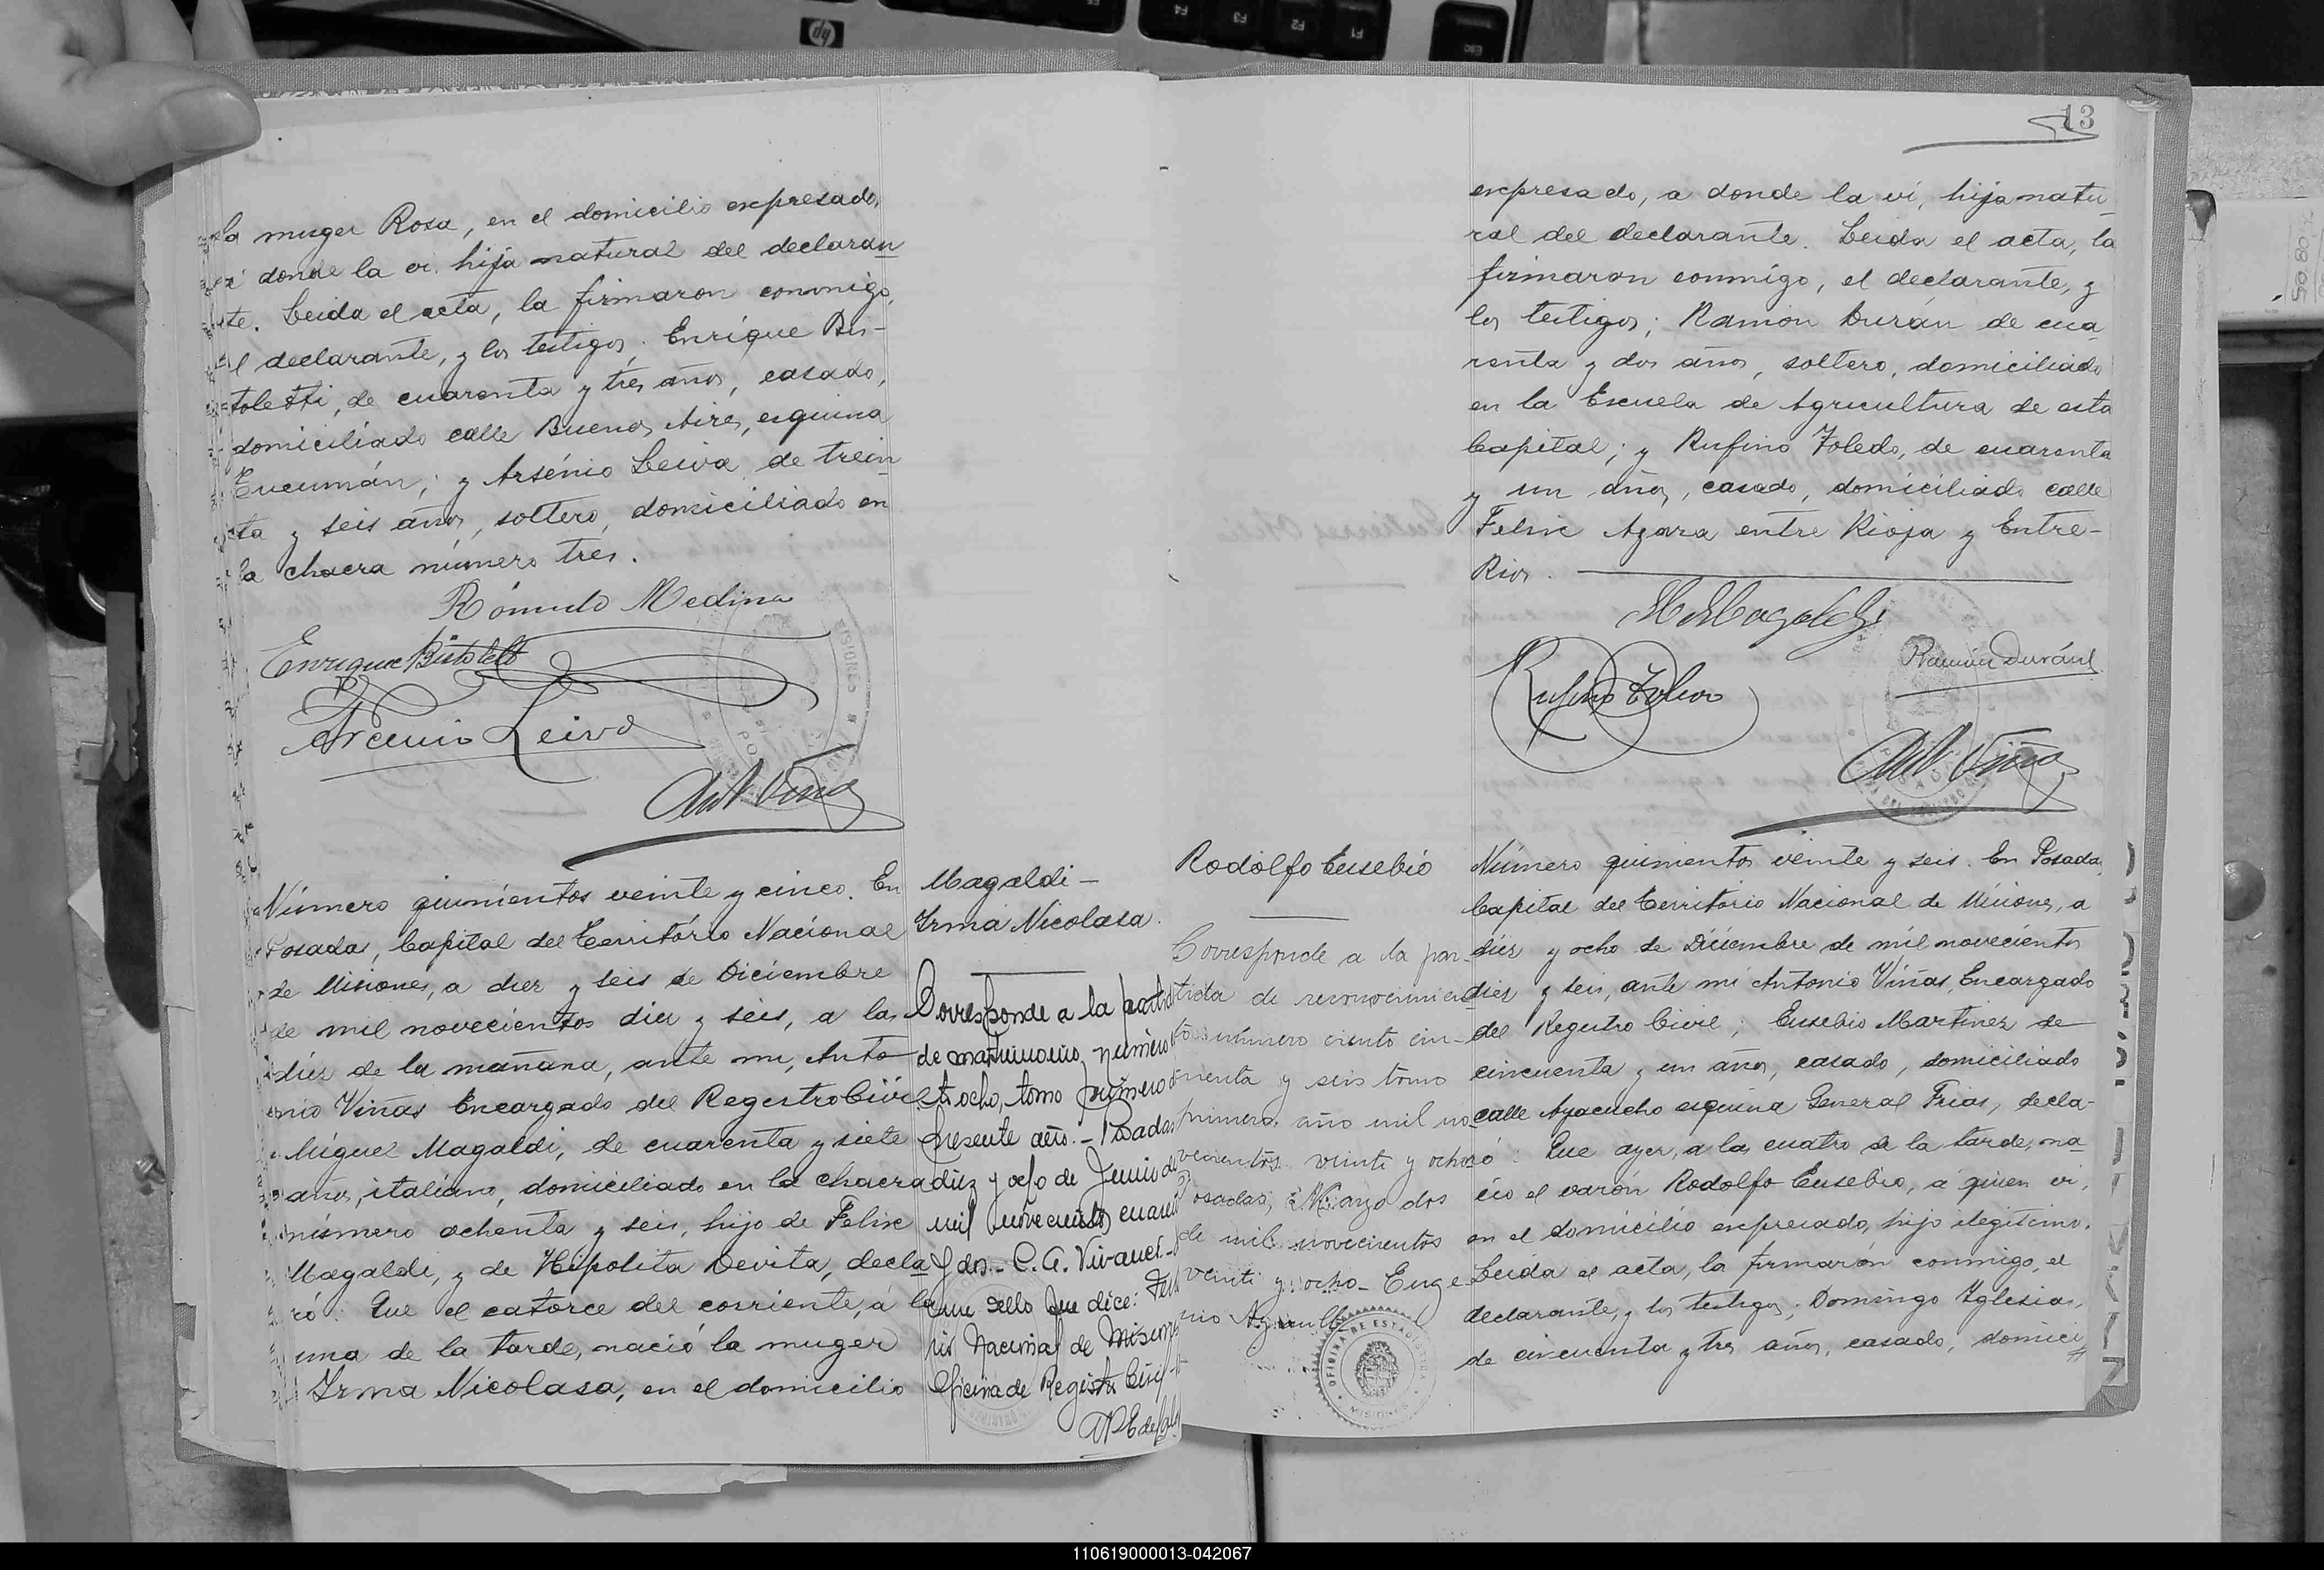 la muger Rosa, en el domicilio expresado,
a donde la vi, hija natural del declaran
te. Leida el acta, la firmaron conmigo,
el declarante, y los testigos; Enrique Bis-
toletti, de cuarenta y tres años, casado,
domiciliado calle Buenos Aires, esquina
Tucumán; y Arsénio Leiva, de trein
ta y seis años, soltero, domiciliado en
la chacra número tres.
Rómulo Medina
Enrique Bistoletti
Arcenio Leiva
Ant Viñas
Número quinientos veinte y cinco. En
Posadas, Capital del Território Nacional
de Misiones, a diez y seis de Diciembre
de mil novecientos diez y seis, a las
diez de la mañana, ante mi, Anto
nio Viñas Encargado del Registro Civil
Miguel Magaldi, de cuarenta y siete
años, italiano, domiciliado en la chacra
número ochenta y seis, hijo de Felix
Magaldi, y de Hipolita Devita, decla
ró: Que el catorce del corriente, a la
una de la tarde, nació la muger
Irma Nicolasa, en el domicilio
Magaldi-
Irma Nicolasa.
Corresponde a la
de matrimonio, numero
ocho, tomo primero
presente año.- Posadas
diez y ocho de Junio de
mil novecientos
y dos.- C. A.
un sello que dice:
Nacional de Misiones
Oficina de Registro Civil
13
expresado, a donde la vi, hija natu-
ral del declarante. Leida el acta, la
firmaron conmigo, el declarante, y
los testigos; Ramón Durán de cua
renta y dos años, soltero, domiciliado
en la Escuela de Agricultura de esta
Capital; y Rufino Toledo, de cuarenta
y un años, casado, domiciliado calle
Felix Azara entre Rioja y Entre-
Rios.
M Magaldi
Ramón Durán
Rufino Toledo
Ant Viñas
Rodolfo Eusebio
Corresponde a la par-
tida de reconocimien
to número ciento cin-
cuenta y seis tomo
primero, año mil no
vecientos veinte y ocho
Posadas, Mayo dos
de mil novecientos
veinti y ocho- Euge
nio
OFICINA DE ESTADISTICA
MISIONES
Número quinientos veinte y seis. En Posadas
Capital del Território Nacional de Misiones, a
diez y ocho de Diciembre de mil novecientos
diez y seis, ante mi Antonio Viñas, Encargado
del Registro Civil; Eusebio Martinez de
cincuenta y un años, casado, domiciliado
calle Ayacucho esquina General Frias, decla-
ró: Que ayer, a las cuatro de la tarde, na
ció el varón Rodolfo Eusebio, a quien vi,
en el domicilio expresado, hijo ilegitimo.
Leida el acta, la firmarón conmigo, el
declarante, y los testigos; Domingo Yglesias,
de cincuenta y tres años, casado, domici
110619000013-042067